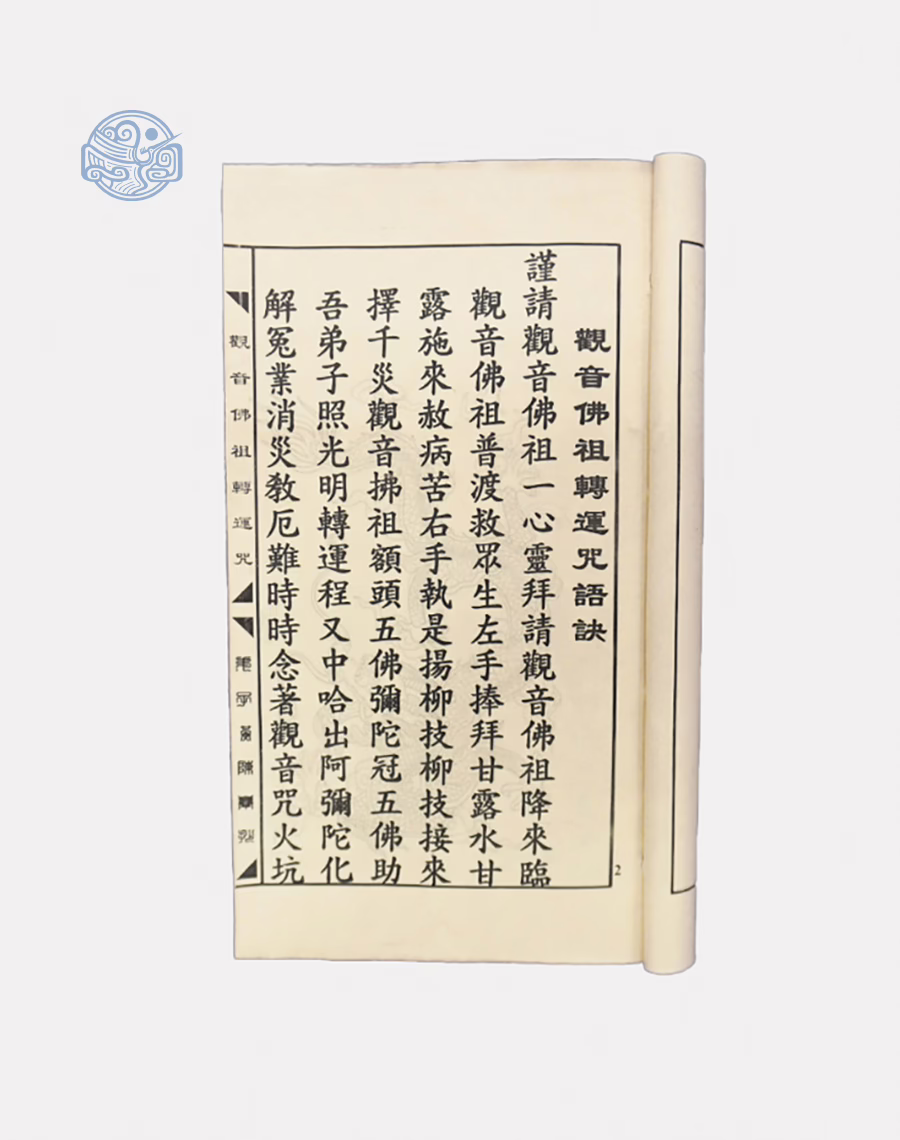 觀音佛祖轉運咒語訣
謹請觀音佛祖一心靈拜請觀音佛祖降來臨
觀音佛祖普渡救眾生左手捧拜甘露水甘
露施來赦病苦右手執是揚柳技柳技接來
擇千災觀音拂祖額頭五佛彌陀冠五佛助
吾弟子照光明轉運程又中哈出阿彌陀化
解冤業消災教厄難時時念著觀音咒火坑
觀音佛祖轉運咒
2